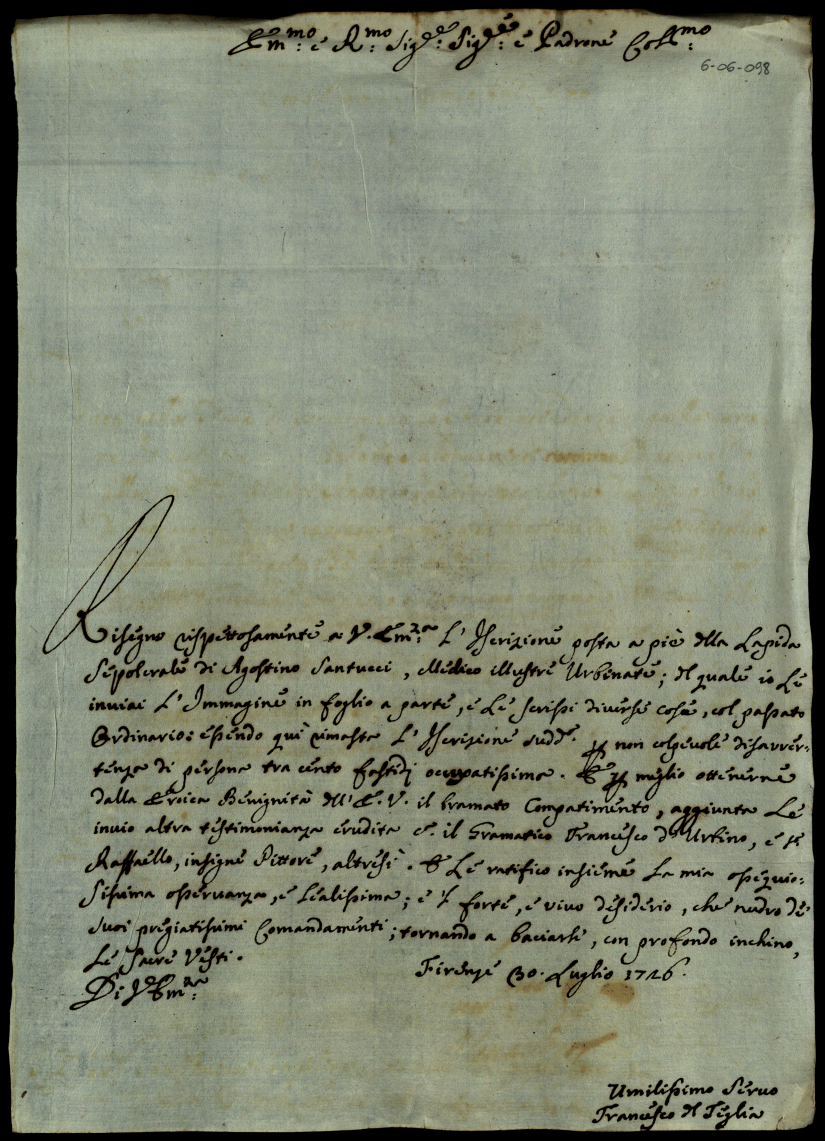 Em:mo e R:mo Sig:re Sig:re e Padrone Col:mo
6-06-098
Rasegno rispettosamente a V. Em:za L'Iscrizione posta a piè della Lapida
Sepolcrale di Agostino Santucci, Medico illustre Urbinate; del quale io Le
inviai L'Immagine in foglio a parte, e Le scrissi diverse cose, col passato
Ordinario: essendo quì rimasta L'Iscrizione sudd.a p non colpevole disavver:
tenza di persona tra cento fastidj occupatissima. E p meglio ottenerne
dalla Eroica Benignità dell'E. V. il bramato Compatimento, aggiunta Le
invio altra testimonianza erudita il Gramatico Francesco d'Urbino, e
Raffaello, insigne Pittore, altresì. E Le ratifico insieme La mia ossequio:
sissima osservanza, e Lealissima; e 'l forte, e vivo desiderio, che nudro de'
suoi pregiatissimi Comandamenti; tornando a baciarle, con profondo inchino,
Le Sacre Vesti.
Firenze 30. Luglio 1726.
Di V. Em:za
Umilissimo Servo
Francesco del Teglia